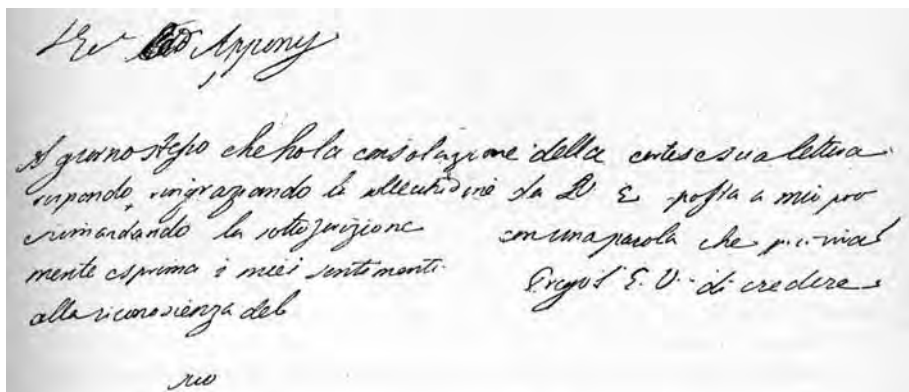 Appony
Il giorno stesso che ho la consolazione della cortese sua lettera
rispondo, ringraziando la sollecitudine da V. E. posta a mio pro
e rimandando la sottoscrizione con una parola che
mente esprima i miei sentimenti. Prego l'E. V. di credere
alla riconoscienza del
suo